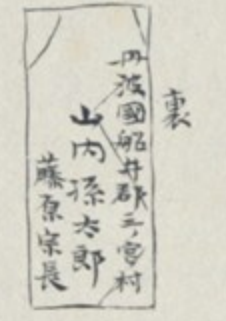 裏
丹波國船井郡三ノ宮村
山内孫太郎
藤原宗長